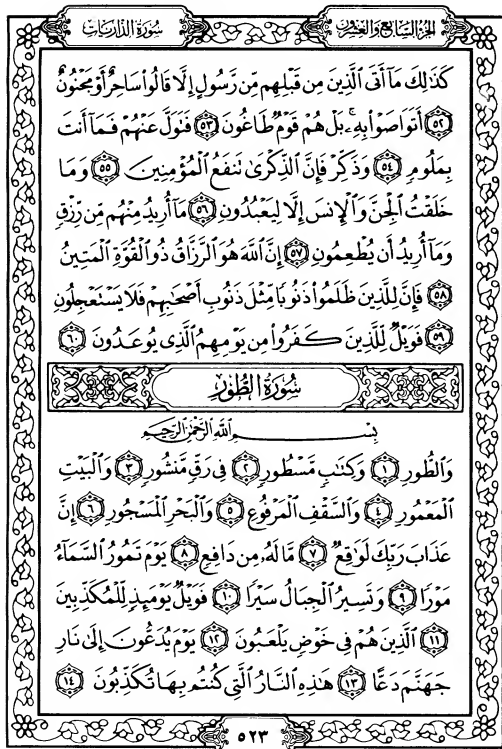 سُورَةُ الذَّارِيَاتِ
الجُزْءُ السَّابِعُ وَالعِشْرُونَ
كَذَٰلِكَ مَآ أَتَى الَّذِينَ مِن قَبْلِهِم مِّن رَّسُولٍ إِلَّا قَالُوا۟ سَاحِرٌ أَوْ مَجْنُونٌ
٥٢ أَتَوَاصَوْا۟ بِهِۦ ۚ بَلْ هُمْ قَوْمٌ طَاغُونَ ٥٣ فَتَوَلَّ عَنْهُمْ فَمَآ أَنتَ
بِمَلُومٍ ٥٤ وَذَكِّرْ فَإِنَّ الذِّكْرَىٰ تَنفَعُ الْمُؤْمِنِينَ ٥٥ وَمَا
خَلَقْتُ الْجِنَّ وَالْإِنسَ إِلَّا لِيَعْبُدُونِ ٥٦ مَآ أُرِيدُ مِنْهُم مِّن رِّزْقٍ
وَمَآ أُرِيدُ أَن يُطْعِمُونِ ٥٧ إِنَّ اللَّهَ هُوَ الرَّزَّاقُ ذُو الْقُوَّةِ الْمَتِينُ
٥٨ فَإِنَّ لِلَّذِينَ ظَلَمُوا۟ ذَنُوبًا مِّثْلَ ذَنُوبِ أَصْحَٰبِهِمْ فَلَا يَسْتَعْجِلُونِ
٥٩ فَوَيْلٌ لِّلَّذِينَ كَفَرُوا۟ مِن يَوْمِهِمُ الَّذِى يُوعَدُونَ ٦٠
سُورَةُ الطُّورِ
بِسْمِ اللَّهِ الرَّحْمَٰنِ الرَّحِيمِ
وَالطُّورِ ١ وَكِتَٰبٍ مَّسْطُورٍ ٢ فِى رَقٍّ مَّنشُورٍ ٣ وَالْبَيْتِ
الْمَعْمُورِ ٤ وَالسَّقْفِ الْمَرْفُوعِ ٥ وَالْبَحْرِ الْمَسْجُورِ ٦ إِنَّ
عَذَابَ رَبِّكَ لَوَٰقِعٌ ٧ مَّا لَهُۥ مِن دَافِعٍ ٨ يَوْمَ تَمُورُ السَّمَآءُ
مَوْرًا ٩ وَتَسِيرُ الْجِبَالُ سَيْرًا ١٠ فَوَيْلٌ يَوْمَئِذٍ لِّلْمُكَذِّبِينَ
١١ الَّذِينَ هُمْ فِى خَوْضٍ يَلْعَبُونَ ١٢ يَوْمَ يُدَعُّونَ إِلَىٰ نَارِ
جَهَنَّمَ دَعًّا ١٣ هَٰذِهِ النَّارُ الَّتِى كُنتُم بِهَا تُكَذِّبُونَ ١٤
٥٢٣